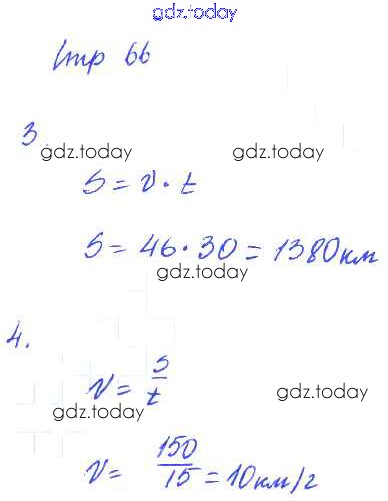 gdz.today
Стр 66
3
gdz.today gdz.today
S = v · t
S = 46 · 30 = 1380 км
gdz.today
4.
v = s/t
gdz.today gdz.today
v = 150/15 = 10 км/г